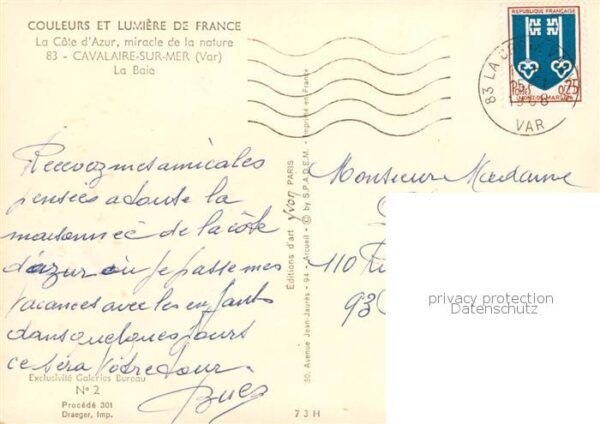 COULEURS ET LUMIÈRE DE FRANCE
La Côte d'Azur, miracle de la nature
83 - CAVALAIRE-SUR-MER (Var)
La Baie
Recevez mes amicales
pensées à toute la
maisonnée de la côte
d'azur où je passe mes
vacances avec les enfants
dans quelques jours
ce sera Votre tour
Exclusivité Galeries Bureau
N° 2
Procédé 301
Draeger, Imp.
73 H
Editions d'art yvon PARIS
30, Avenue Jean Jaurès - 94 - Arcueil - © by S.P.A.D.E.M. - Imprimé en France
REPUBLIQUE FRANÇAISE
0,25
MONT-DE-MARSAN
83 LA
VAR
Monsieur Madame
110
93
privacy protection
Datenschutz